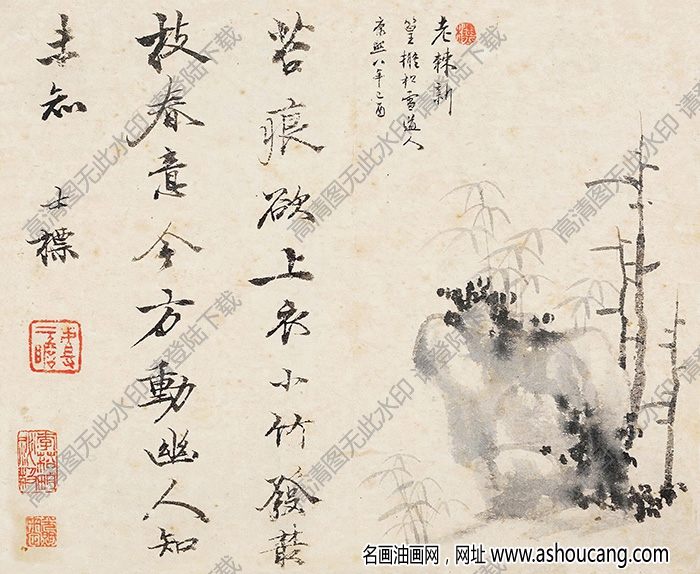 老棘新
篁擬松雪道人
康熙八年己酉
苔痕欲上衣小竹發叢
枝春意今方動幽人知
未知
士標
高清图无此水印 请登陆下载
名画油画网，网址 www.ashoucang.com